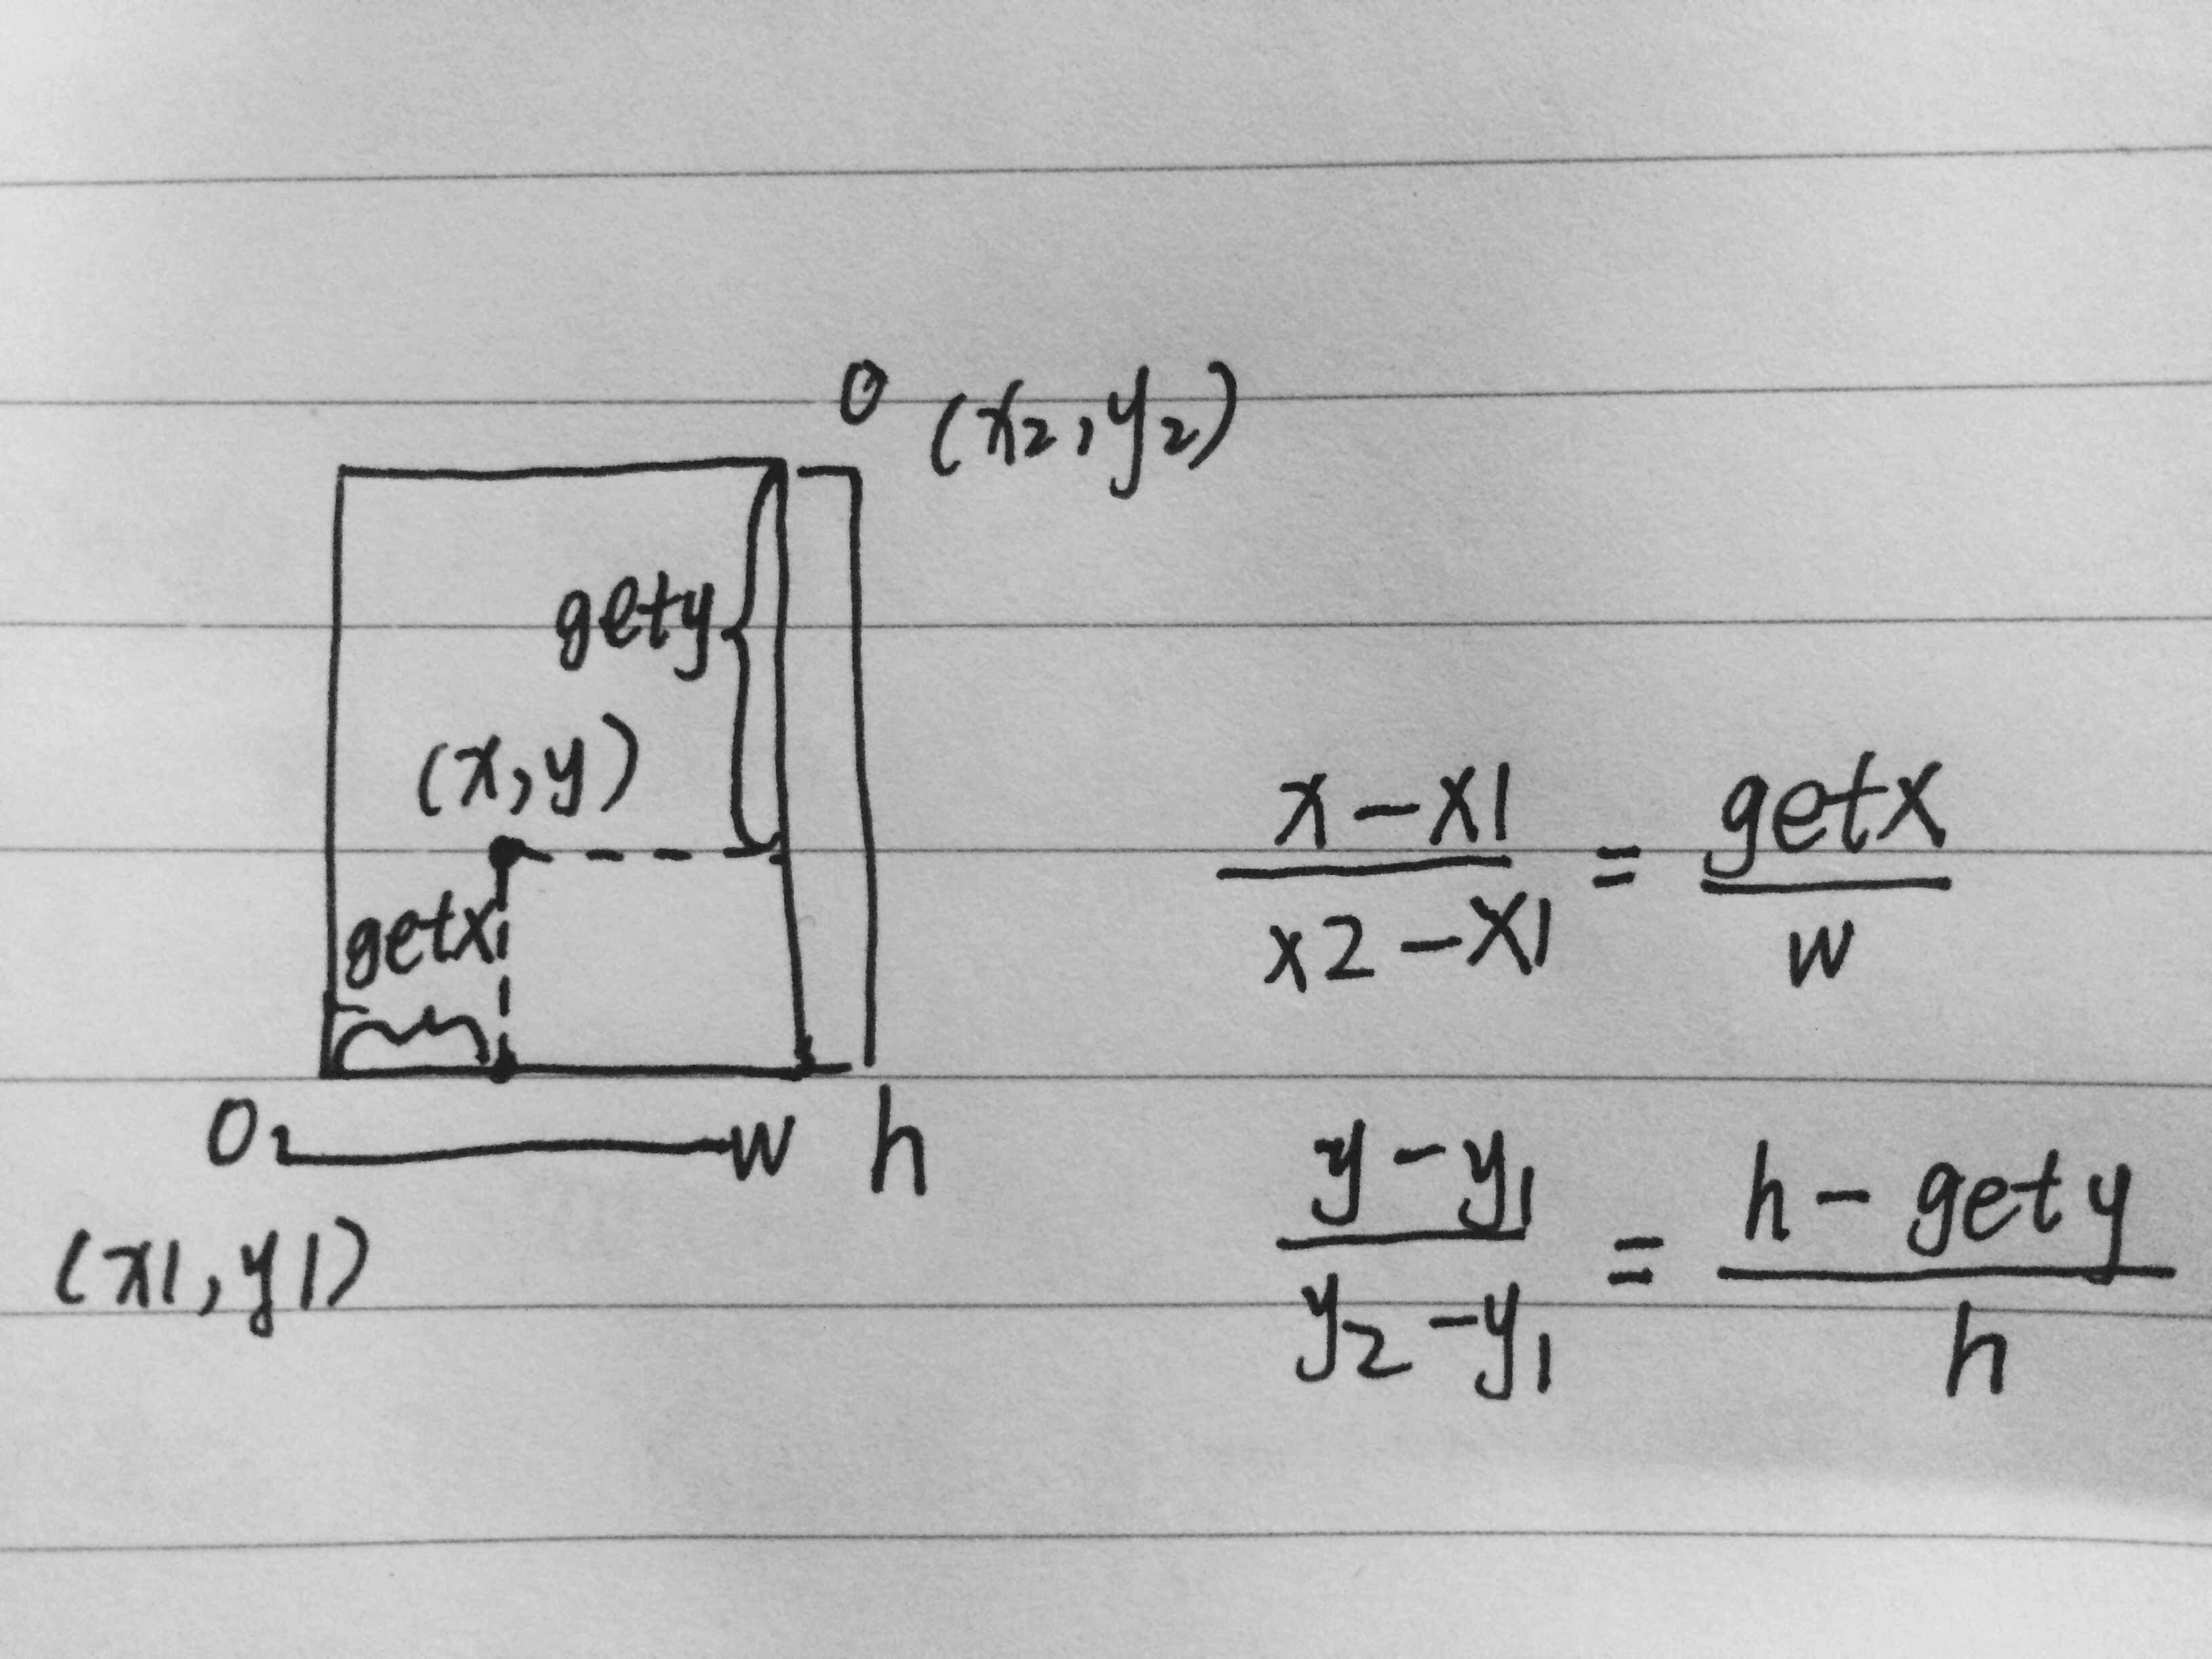 0 (x2,y2)
gety
(x,y)
getx
0 w h
(x1,y1)
x-x1 / x2-x1 = getx / w
y-y1 / y2-y1 = h-gety / h